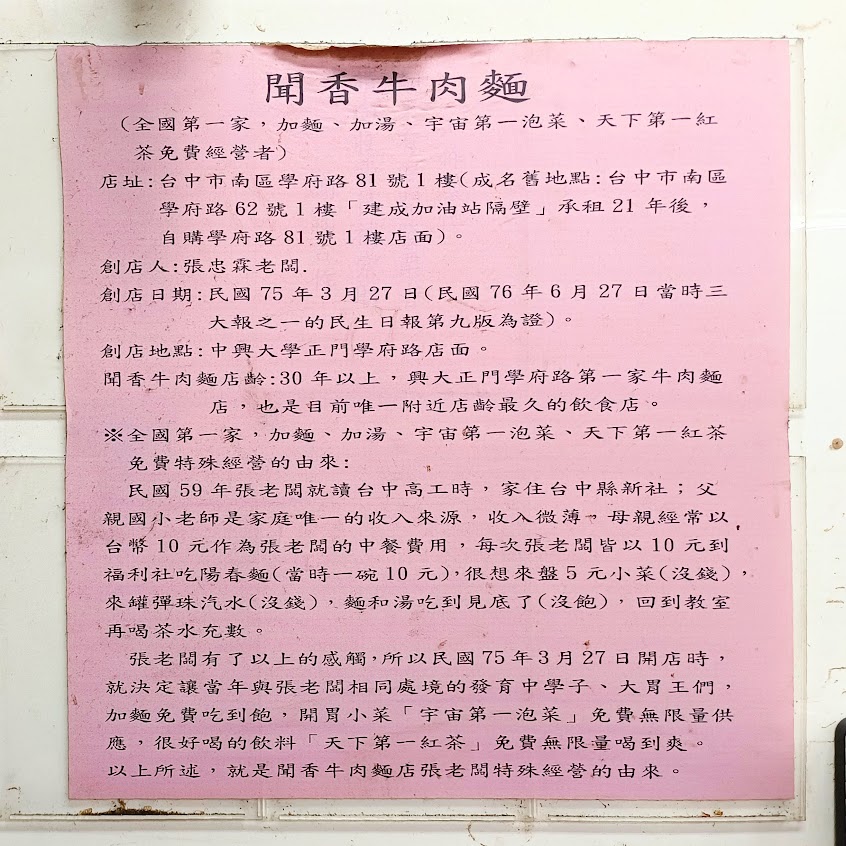 聞香牛肉麵
(全國第一家，加麵、加湯、宇宙第一泡菜、天下第一紅
茶免費經營者)
店址:台中市南區學府路81號1樓(成名舊地點:台中市南區
學府路62號1樓「建成加油站隔壁」承租21年後，
自購學府路81號1樓店面)。
創店人:張忠霖老闆.
創店日期:民國75年3月27日(民國76年6月27日當時三
大報之一的民生日報第九版為證)。
創店地點:中興大學正門學府路店面。
聞香牛肉麵店齡:30年以上，興大正門學府路第一家牛肉麵
店，也是目前唯一附近店齡最久的飲食店。
※全國第一家，加麵、加湯、宇宙第一泡菜、天下第一紅茶
免費特殊經營的由來:
民國59年張老闆就讀台中高工時，家住台中縣新社；父
親國小老師是家庭唯一的收入來源，收入微薄。母親經常以
台幣10元作為張老闆的中餐費用，每次張老闆皆以10元到
福利社吃陽春麵(當時一碗10元)，很想來盤5元小菜(沒錢)，
來罐彈珠汽水(沒錢)，麵和湯吃到見底了(沒飽)，回到教室
再喝茶水充數。
張老闆有了以上的感觸，所以民國75年3月27日開店時，
就決定讓當年與張老闆相同處境的發育中學子、大胃王們，
加麵免費吃到飽，開胃小菜「宇宙第一泡菜」免費無限量供
應，很好喝的飲料「天下第一紅茶」免費無限量喝到爽。
以上所述，就是聞香牛肉麵店張老闆特殊經營的由來。